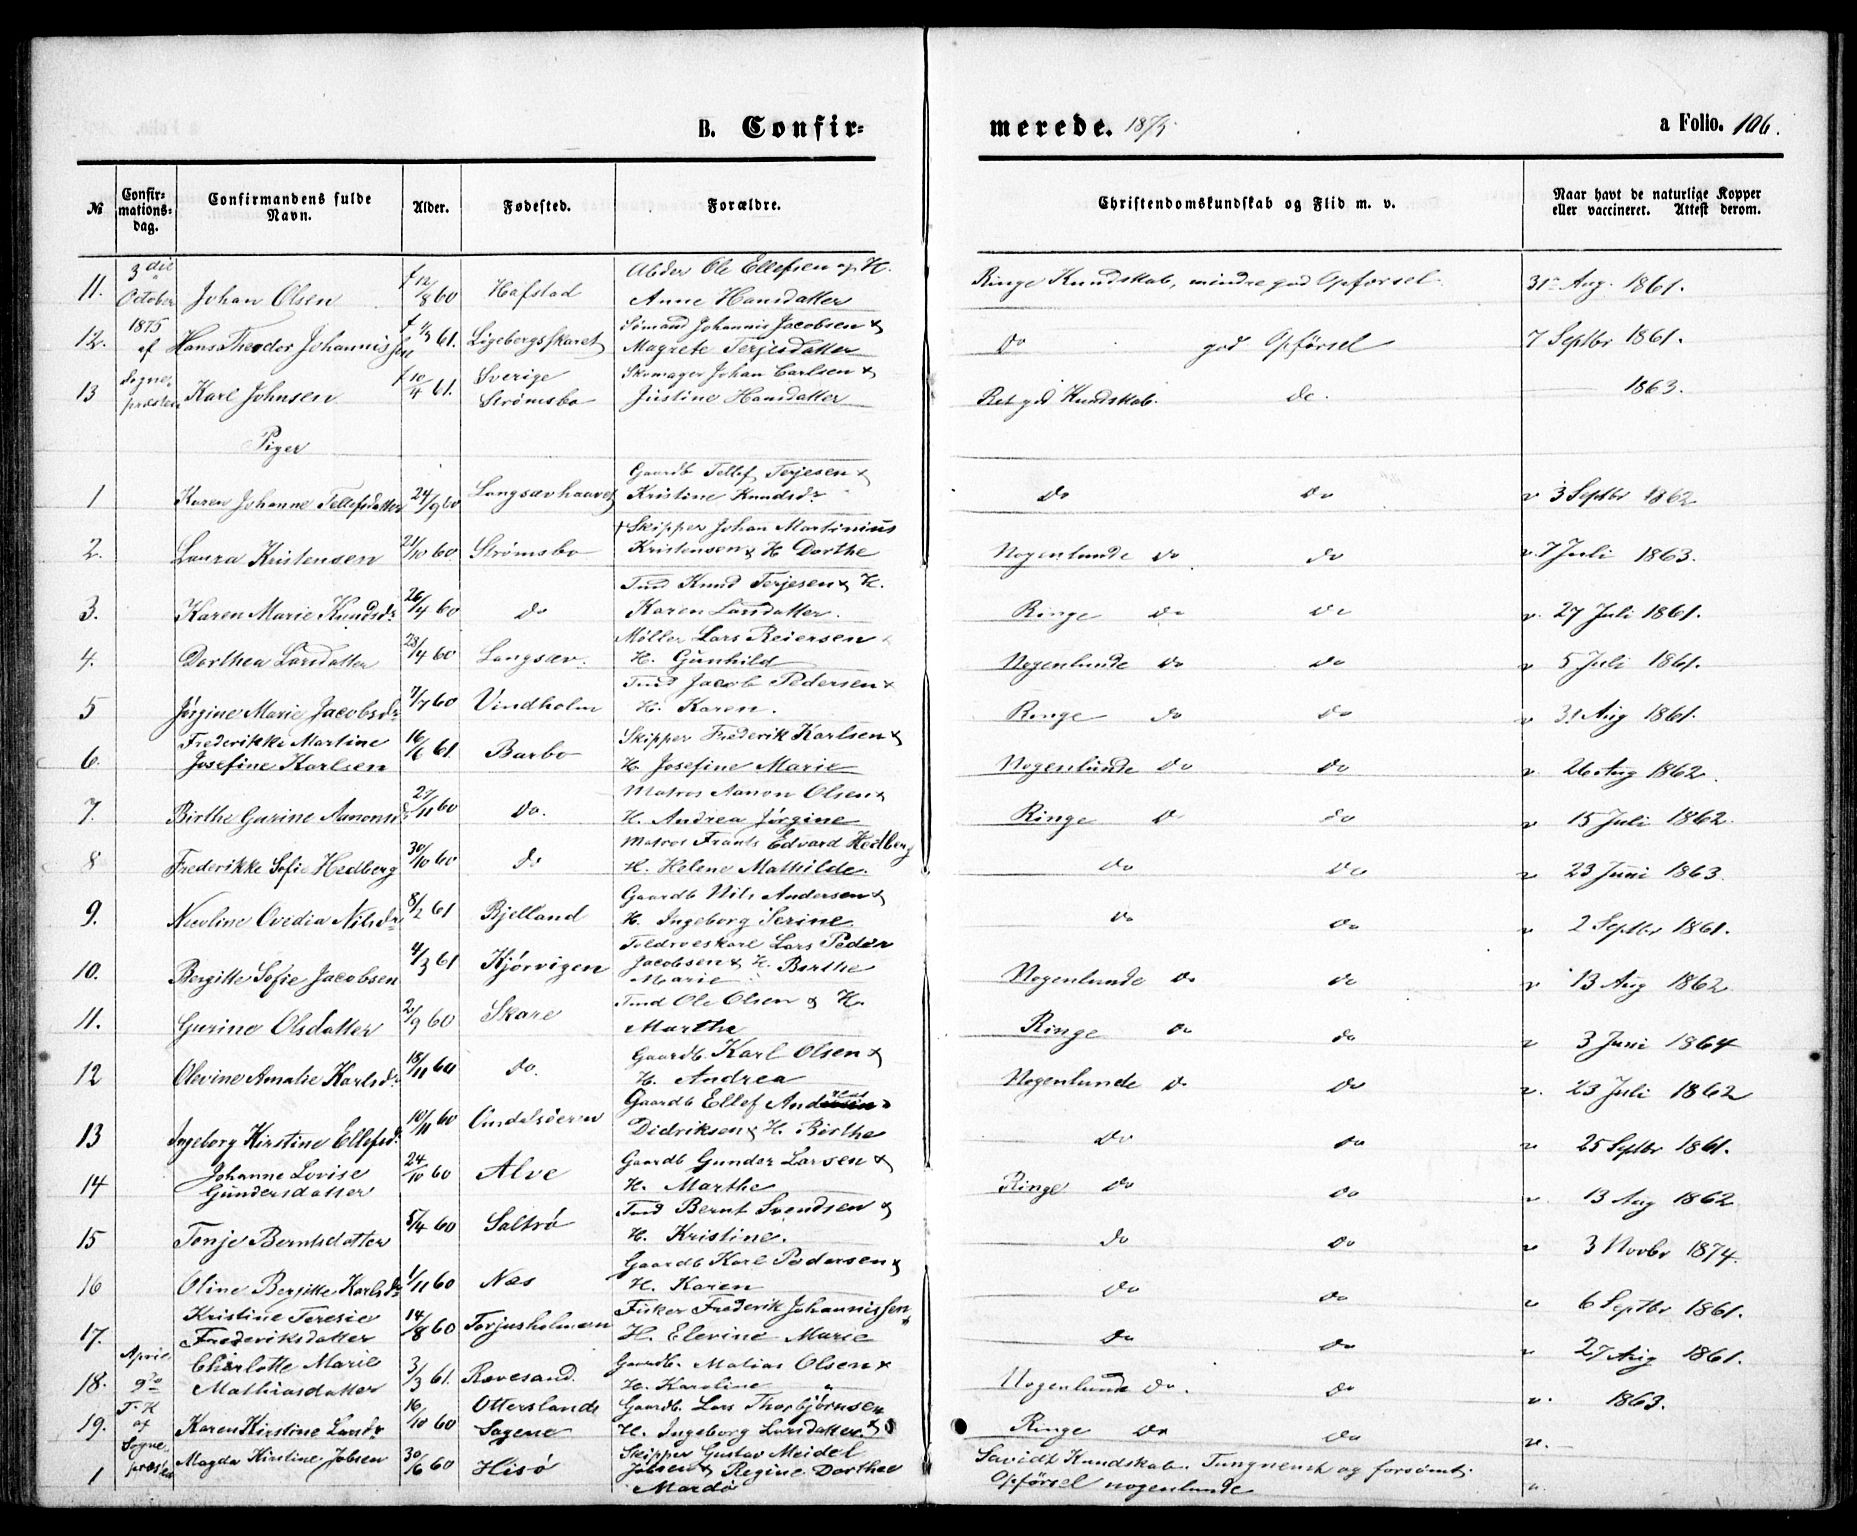 B. Confir-
merede. 1875.
a Folio. 106.
№ Confir-mations-dag. Confirmandens fulde Navn. Alder. Fødested. Forældre. Christendomskundskab og Flid m. v. Naar havt de naturlige Kopper eller vaccineret. Attest derom.
3die Ole Ellefsen og H.
11. October Johan Olsen 12/8 60 Hafstad Anne Hansdatter Ringe Kundskab, mindre god Opførsel 31 Aug. 1861.
1875 Sømand Johannis Jacobsen &
12. af Hans Theodor Johannissen 61. Ligebergsskaret Magrete Terjesdatter do god Opførsel 7 Septbr 1861.
Sogne- Sverige Skomager Johan Carlsen &
13 præsten Karl Johnsen 10/4 61. Strømsbo Justine Hansdatter Ret god Kundskab. do. 1863.
Piger
Gaardb Tellef Terjesen &
1 Karen Johanne Tellefsdatter 24/9 60 Langsævhaavet Kristine Knudsdr do do v 3 Septbr 1862
† Skipper Johan Martinius
2. Laura Kristensen 21/10 60. Strømsbo Kristensen & H. Dorthe Nogenlunde do do v. 7 Juli 1863.
Knud Terjesen & H.
3. Karen Marie Knudsdr 26/4 60 do Karen Larsdatter. Ringe do do v. 27 Juli 1861.
Møller Lars Reiersen &
4. Dorthea Larsdatter 28/4 60 Langsæv. H. Gunhild Nogenlunde do do v 5 Juli 1861.
Jacob Pedersen &
5 Jørgine Marie Jacobsdr 7/7 60 Vindholm H. Karen. Ringe do do v 31 Aug 1861.
Frederikke Martine Skipper Frederik Karlsen &
6. Josefine Karlsen 16/6 61. Barbo H. Josefine Marie Nogenlunde do do v. 26 Aug 1862.
Matros Aanon Olsen &
7. Birthe Gurine Aanonsdr 27/11 60 do. H. Andrea Jørgine Ringe do do v 15 Juli 1862.
Matros Frants Edvard Hedberg
8 Frederikke Sofie Hedberg 30/10 60 do H. Helene Mathilde. do do v 23 Juni 1863.
Gaardb Nils Andersen &
9. Nicoline Ovedia Nilsdr 8/2 61 Bjelland H. Ingeborg Serine. do do v 2 Septbr 1861.
Toldroeskarl Lars Peder
10. Bergitte Sofie Jacobsen 4/3 61 Kjørvigen Jacobsen & H. Birthe Nogenlunde do do v 13 Aug 1862.
Marie
Ole Olsen & H.
11. Gurine Olsdatter 2/9 60 Skare Marthe Ringe do do v 3 Juni 1864
Gaardb. Karl Olsen &
12 Olevine Amalie Karlsdr 18/11 60 do. H. Andrea Nogenlunde do do v. 23 Juli 1862
Gaardb Ellef
13 Ingeborg Kirstine Ellefsdr 10/11 60 Didriksen & H. Birthe do do v 25 Septbr 1861.
Johanne Lovise Gaardb Gunder Larsen &
14 Gundersdatter 24/10 60 Alve H. Marthe Ringe do do v. 13 Aug 1862.
Bernt Svendsen &
15 Tonje Berntsdatter 5/4 60 Saltrø H. Kristine. do do v 3 Novbr 1874.
Gaardb Karl Pedersen &
16 Oline Bergitte Karlsdr 1/11 60 Næs H. Karen do do v 6 Septbr 1861.
Kristine Teresie Fisker Frederik Johannissen &
17. Frederiksdatter 14/8 60 Torjusholmen H. Elevine Marie do do v 27 Aug 1861.
April Charlotte Marie Gaardb. Matias Olsen &
18. 9de Mathiasdatter 3/3 61. Rævesand. H. Karoline Nogenlunde do. do v. 1863.
T. K. Otterslands Gaardb. Lars Thorbjørnsen
19. af Karen Kirstine Larsdr 16/10 60 Sagene H. Ingeborg Larsdatter Ringe do do v.
Sogne- Skipper Gustav Meidel
1 præsten Magda Kirstine Jobsen 30/6 60 Hisø Jobsen & Regine Dorthea Kundskab. Tungnem og forsømt.
Mardø Opførsel nogenlunde v.